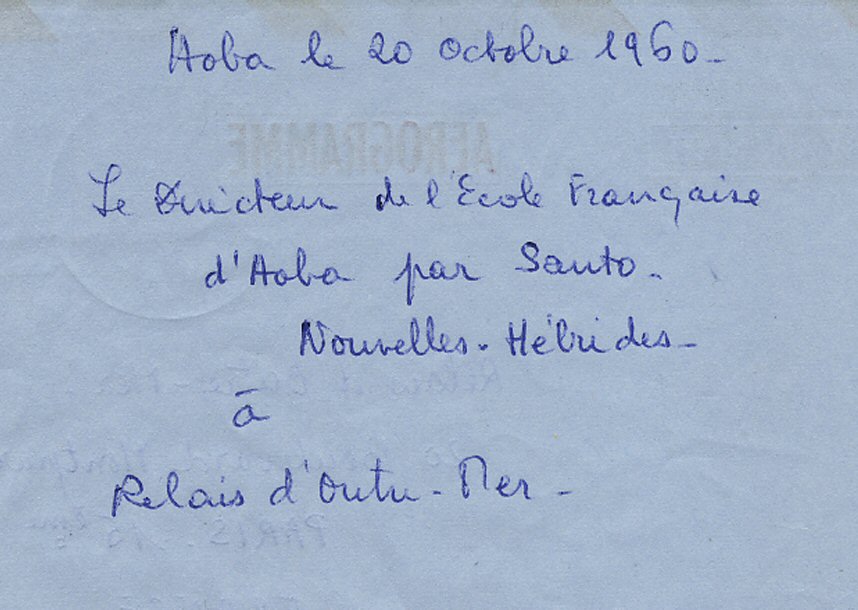 Aoba le 20 octobre 1960-
AEROGRAMME
Le Directeur de l'Ecole Française
d'Aoba par Santo.
Nouvelles-Hébrides-
à
Relais d'Outre-Mer-
PARIS. 15ème